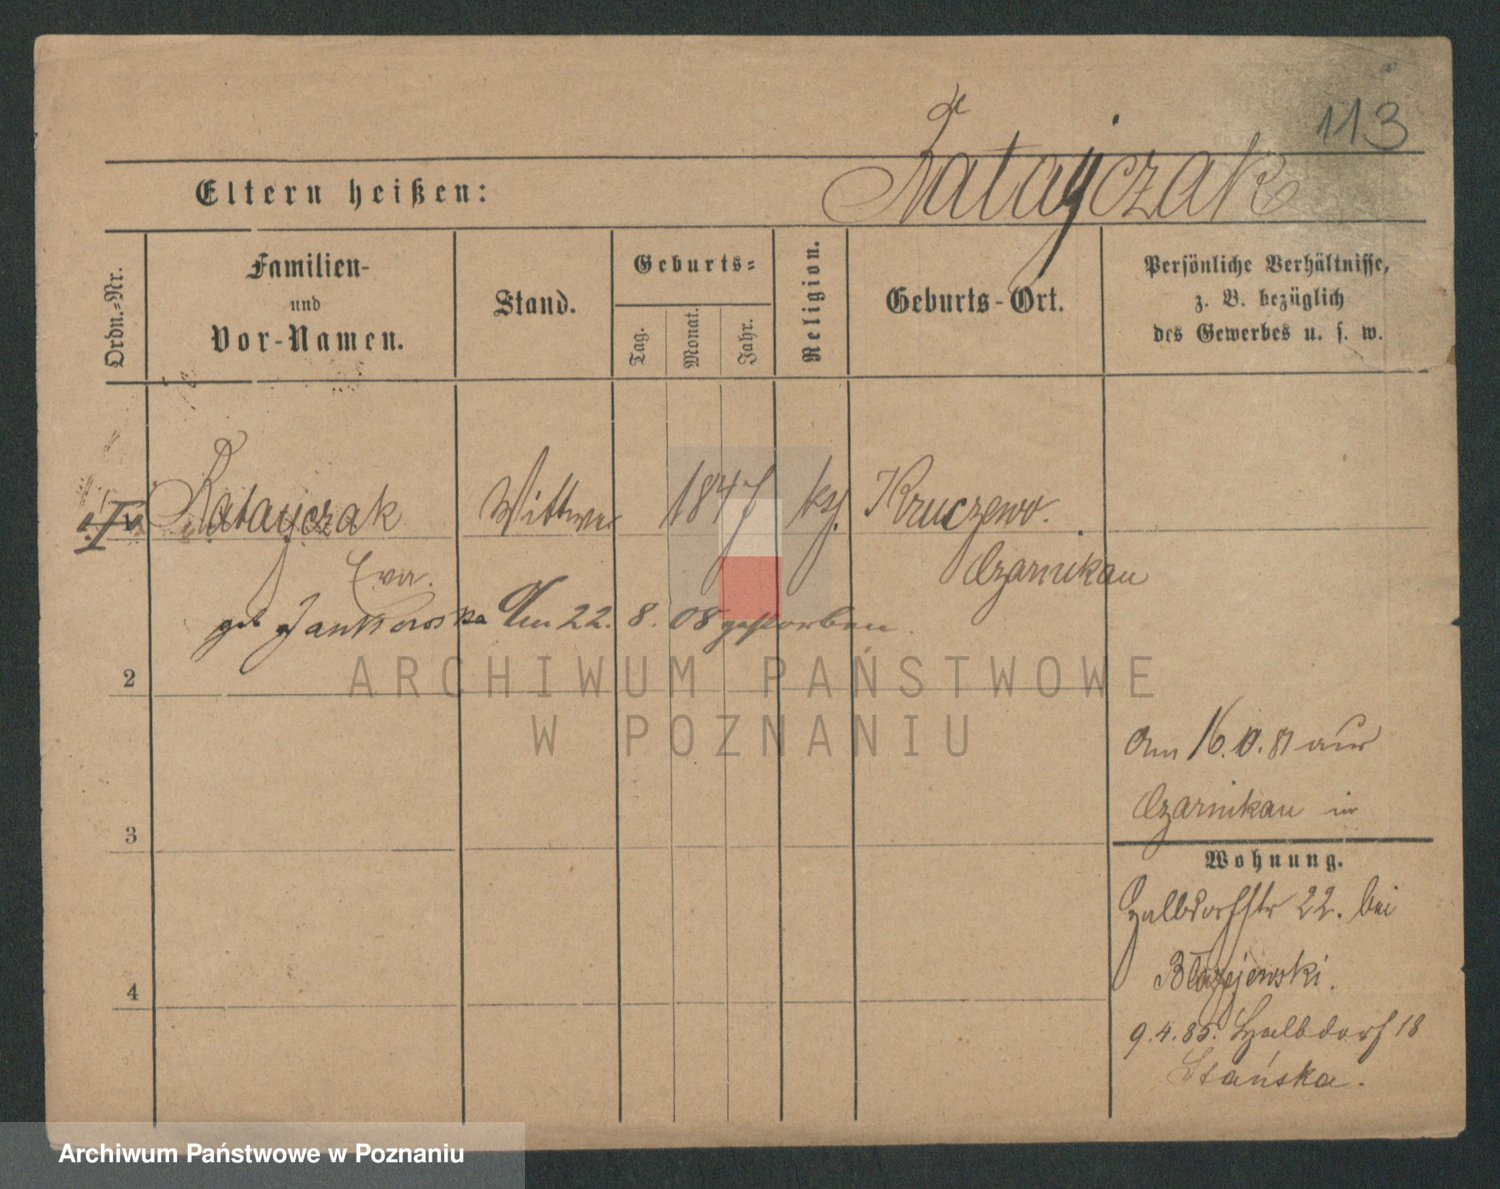 113
Eltern heißen: Ratajczak
Ordn.=Nr.
Familien-
und
Vor-Namen.
Stand.
Geburts=
Tag.
Monat.
Jahr.
Religion.
Geburts-Ort.
Persönliche Verhältnisse,
z. B. bezüglich
des Gewerbes u. s. w.
Ratajczak Wittwe 1847 kt. Kruczewo.
Eva. Czarnikau
geb Jankowska Am 22. 8. 08 gestorben.
2
ARCHIWUM PAŃSTWOWE
W POZNANIU
Am 16. 81 aus
Czarnikau in
3
Wohnung.
Halbdorfstr 22. bei
Błażejewski.
4
9.4.85. Halbdorf 18
Stańska.
Archiwum Państwowe w Poznaniu